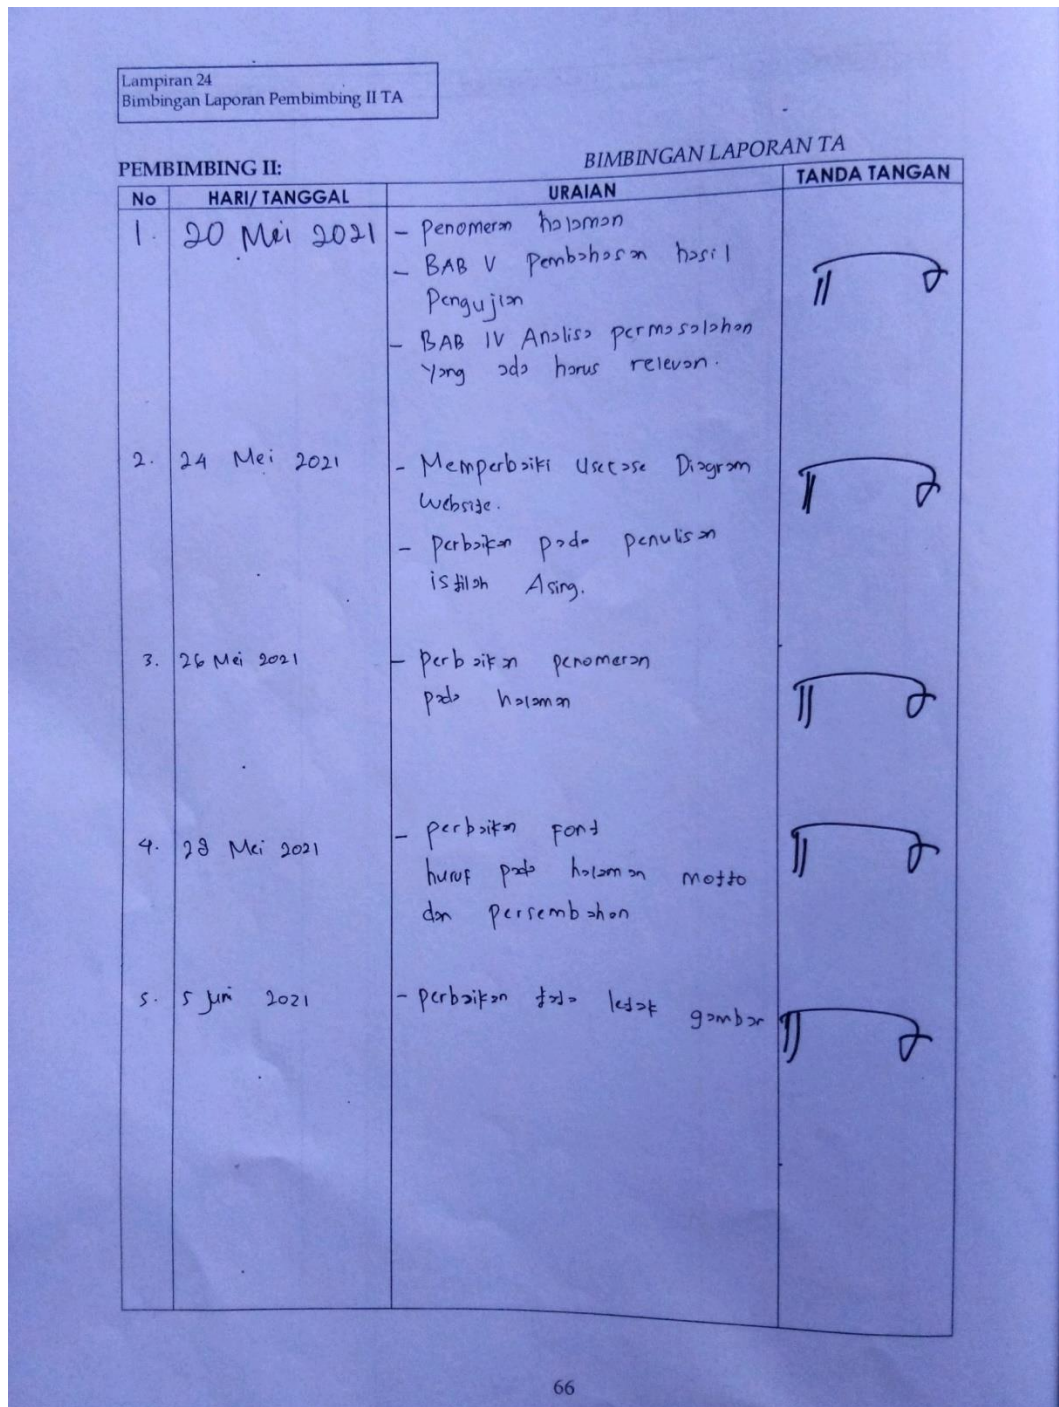 Lampiran 24
Bimbingan Laporan Pembimbing II TA
BIMBINGAN LAPORAN TA
PEMBIMBING II:
No HARI/ TANGGAL URAIAN TANDA TANGAN
1. 20 Mei 2021 - Penomeran halaman
- BAB V Pembahasan hasil
Pengujian
- BAB IV Analisa permasalahan
Yang ada harus relevan.
2. 24 Mei 2021 - Memperbaiki Usecase Diagram
Website.
- perbaikan pada penulisan
istilah Asing.
3. 26 Mei 2021 - Perbaikan penomeran
pada halaman
4. 28 Mei 2021 - perbaikan Font
huruf pada halaman motto
dan persembahan
5. 5 Juni 2021 - perbaikan tata letak gambar
66